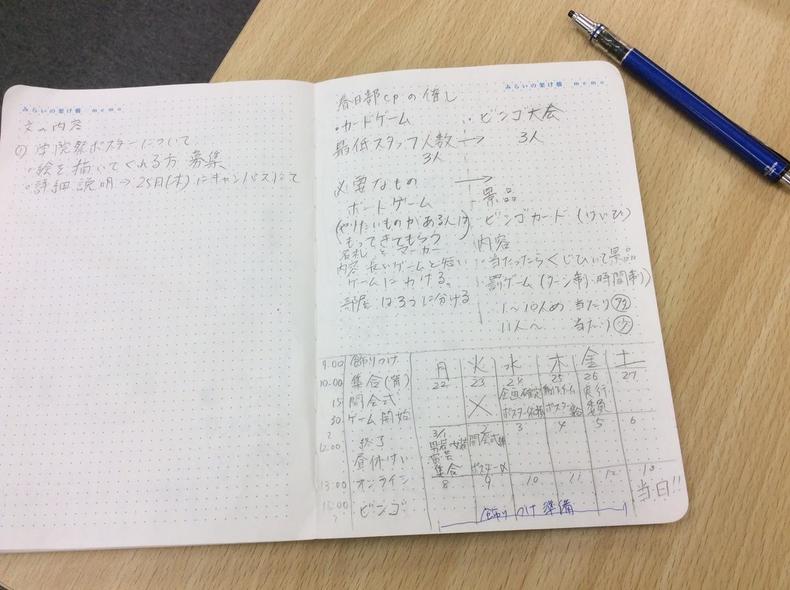 みらいの架け橋 memo
文の内容
① 学院祭ポスターについて
・絵を描いてくれる方 募集
・詳細説明→25日(木)にキャンパスにて
みらいの架け橋 memo
春日部cpの催し
・カードゲーム
・ビンゴ大会
最低スタッフ人数→ 3人
3人
必要なもの →
ボードゲーム
(やりたいものがある人は
もってきてもらう)
名札 と マーカー
内容 長いゲームと短い
ゲームにわける。
部屋は3つに分ける
・景品
・ビンゴカード (けいひ)
内容
・当たったらくじひいて景品
・罰ゲーム (ターン制・時間制)
1〜10人め 当たり
11人〜 当たり
9:00 飾りつけ
10:00 集合(皆)
15 開会式
30 ゲーム開始
12:00 終了
昼休けい
13:00 オンライン
ビンゴ
月 火 水 木 金 土
22 23 24 25 26 27
× 企画確定 ポスター依頼 ポスター 実行委員
3/1 集合
3 4 5 6
8 9 10 11 12 13
当日!!
飾りつけ準備